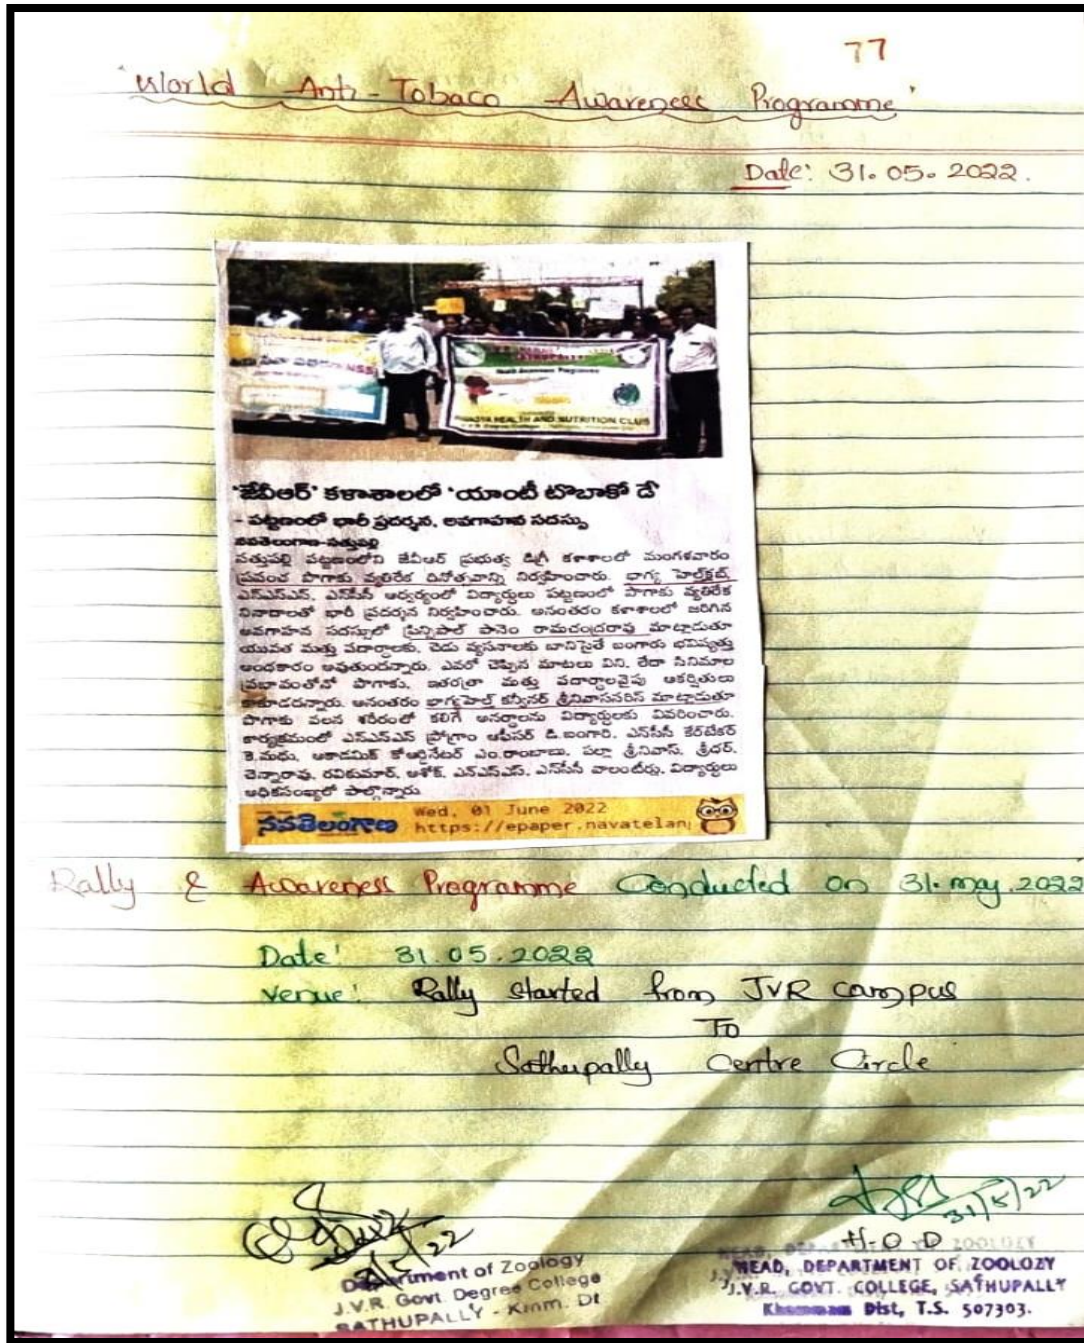 77
'World Anti-Tobaco Awareness Programme'
Date: 31.05.2022.
NSS
Health Awareness Programme
HEALTH AND NUTRITION CLUB
'జేవీఆర్' కళాశాలలో 'యాంటీ టొబాకో డే'
- పట్టణంలో భారీ ప్రదర్శన, అవగాహన సదస్సు
నవతెలంగాణ-సత్తుపల్లి
సత్తుపల్లి పట్టణంలోని జేవీఆర్ ప్రభుత్వ డిగ్రీ కళాశాలలో మంగళవారం
ప్రపంచ పొగాకు వ్యతిరేక దినోత్సవాన్ని నిర్వహించారు. భాగ్య హెల్త్‌క్లబ్,
ఎన్ఎస్ఎస్, ఎన్‌సీసీ ఆధ్వర్యంలో విద్యార్థులు పట్టణంలో పొగాకు వ్యతిరేక
నినాదాలతో భారీ ప్రదర్శన నిర్వహించారు. అనంతరం కళాశాలలో జరిగిన
అవగాహన సదస్సులో ప్రిన్సిపాల్ పానెం రామచంద్రరావు మాట్లాడుతూ
యువత మత్తు పదార్థాలకు, చెడు వ్యసనాలకు బానిసైతే బంగారు భవిష్యత్తు
అంధకారం అవుతుందన్నారు. ఎవరో చెప్పిన మాటలు విని, లేదా సినిమాల
ప్రభావంతోనో పొగాకు, ఇతరత్రా మత్తు పదార్థాలవైపు ఆకర్షితులు
కాకూడదన్నారు. అనంతరం భాగ్యహెల్త్ కన్వీనర్ శ్రీనివాసనరెస్ మాట్లాడుతూ
పొగాకు వలన శరీరంలో కలిగే అనర్థాలను విద్యార్థులకు వివరించారు.
కార్యక్రమంలో ఎన్ఎస్ఎస్ ప్రోగ్రాం ఆఫీసర్ డి.బంగారి, ఎన్‌సీసీ కేర్‌టేకర్
కె.మధు, అకాడమిక్ కోఆర్డినేటర్ ఎం.రాంబాబు, పల్లా శ్రీనివాస్, శ్రీధర్,
చెన్నారావు, రవికుమార్, అశోక్, ఎన్ఎస్ఎస్, ఎన్‌సీసీ వాలంటీర్లు, విద్యార్థులు
అధికసంఖ్యలో పాల్గొన్నారు
నవతెలంగాణ Wed, 01 June 2022
https://epaper.navatelan
Rally & Awareness Programme Conducted on 31.may.2022
Date: 31.05.2022
Venue: Rally started from JVR campus
To
Sathupally Centre Circle
31/5/22
H-O-D
Department of Zoology
J.V.R. Govt. Degree College
SATHUPALLY - Kmm. Dt
HEAD, DEPARTMENT OF ZOOLOZY
J.V.R. GOVT. COLLEGE, SATHUPALLY
Khammam Dist, T.S. 507303.